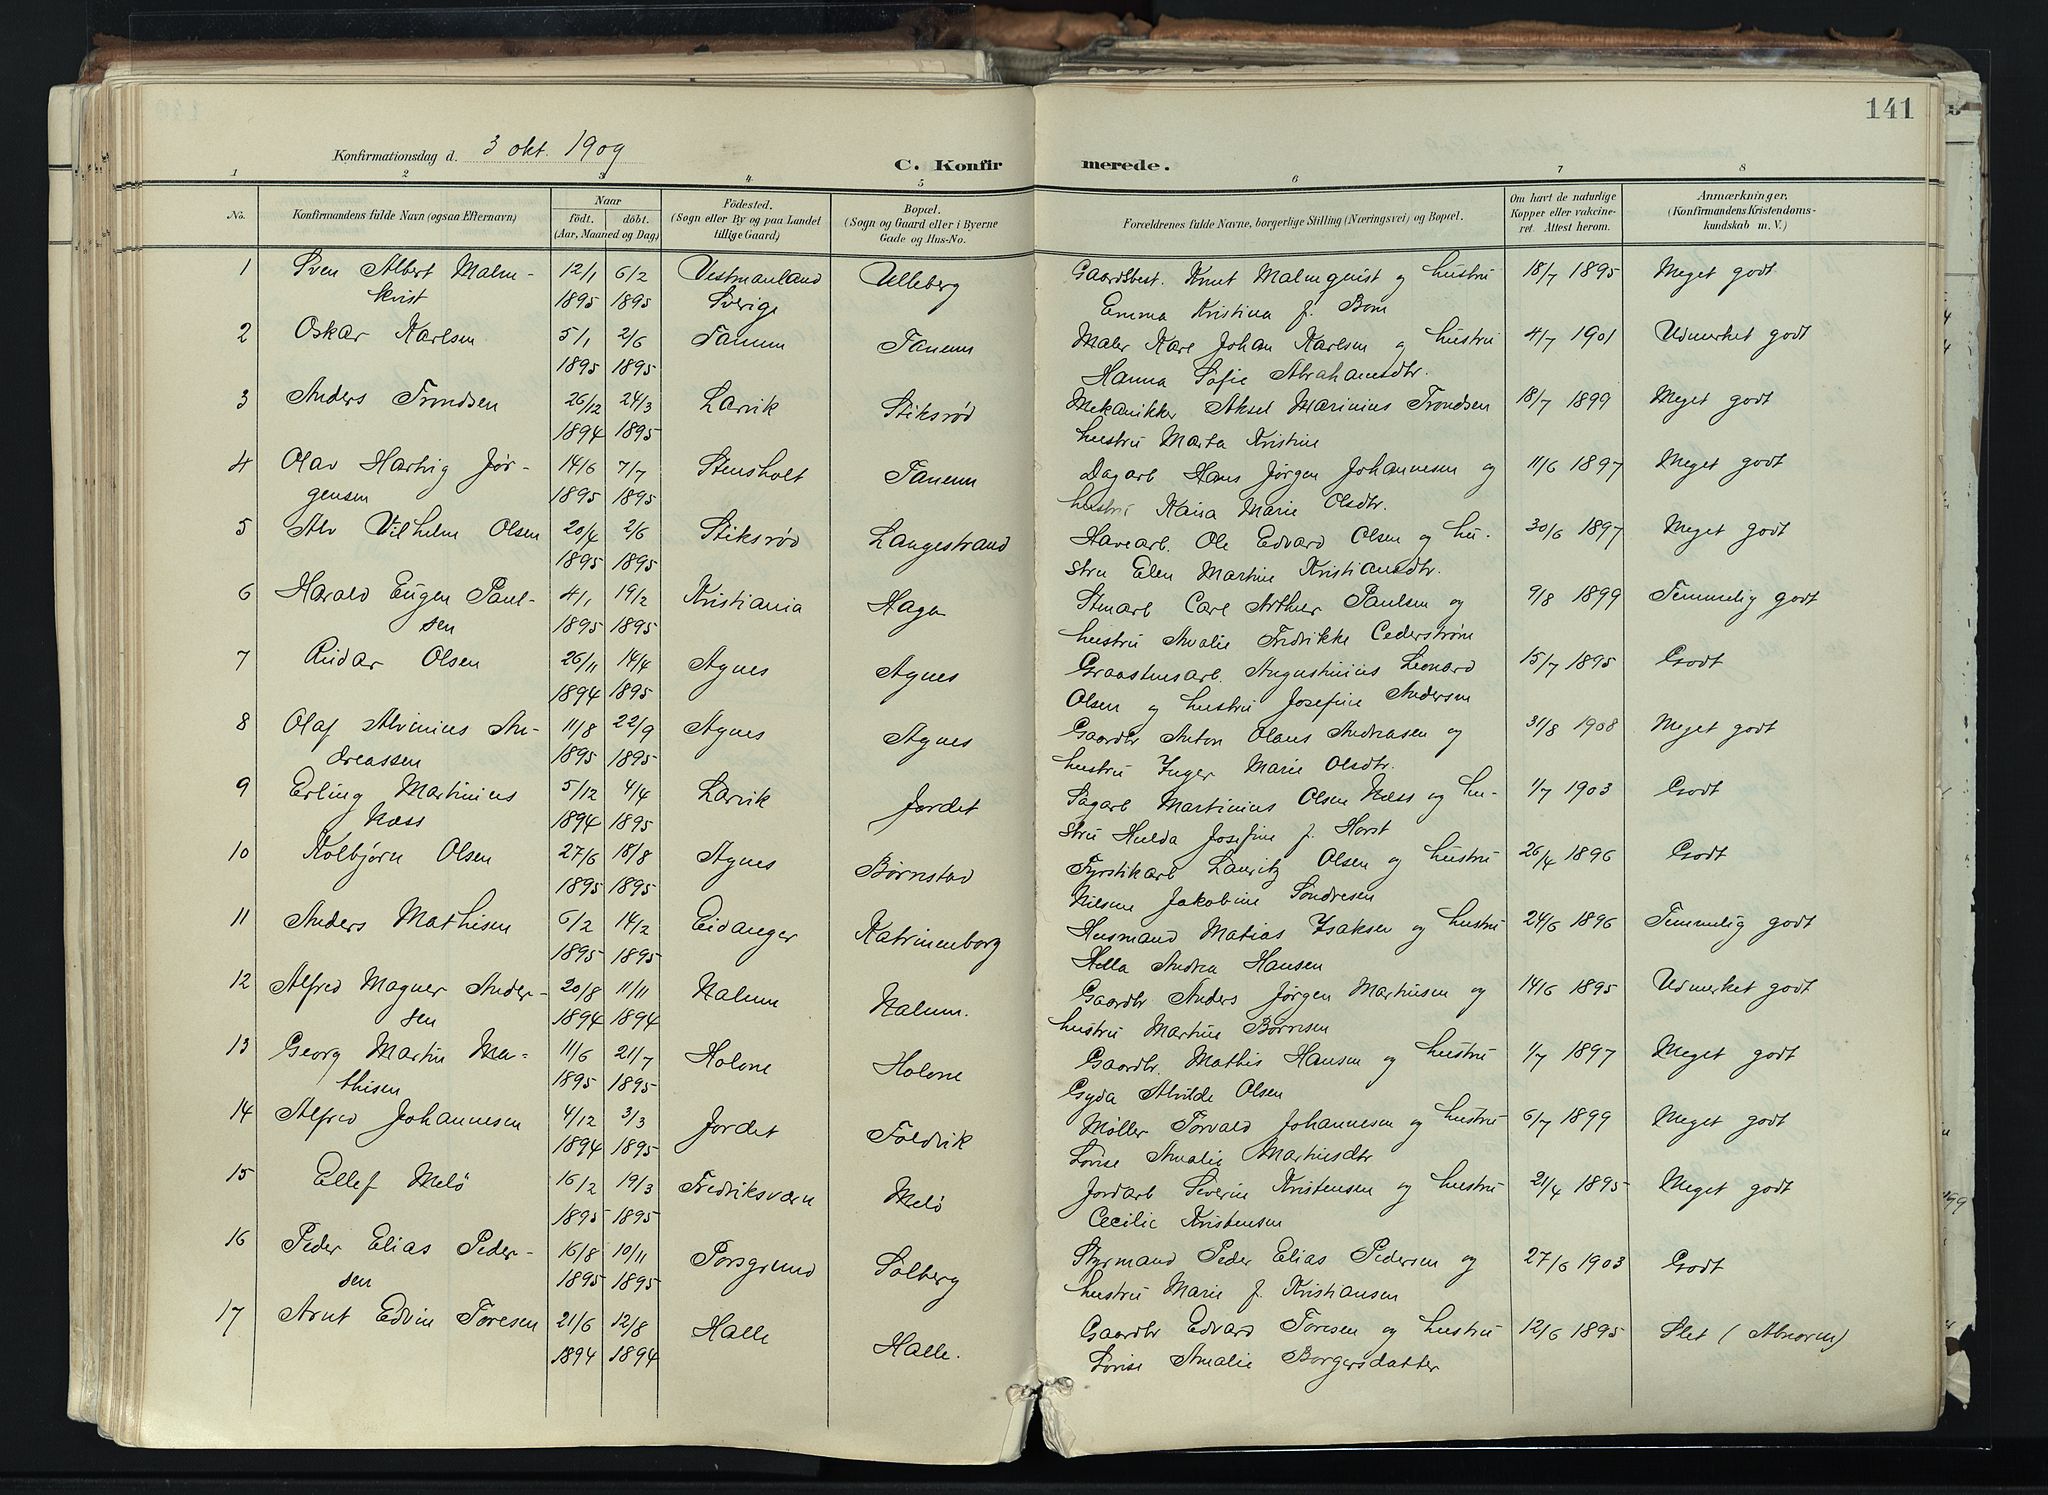 141
Konfirmationsdag d. 3 okt. 1909
C. Konfirmerede.
1 2 3 4 5 6 7 8
No.
Konfirmandens fulde Navn (ogsaa Efternavn)
Naar
født. døbt.
(Aar, Maaned og Dag)
Fødested.
(Sogn eller By og paa Landet
tillige Gaard)
Bopæl.
(Sogn og Gaard eller i Byerne
Gade og Hus-No.
Forældrenes fulde Navne, borgerlige Stilling (Næringsvei) og Bopæl.
Om havt de naturlige
Kopper eller vakcine-
ret. Attest herom.
Anmærkninger,
(Konfirmandens Kristendoms-
kundskab m. V.)
1 Sven Albert Malm- 12/1 6/2 Vestmanland Ulleberg Gaardbest. Knut Malmquist og hustru 18/7 1895 Meget godt
kvist 1895 1895 Sverige Emma Kristina f. Bom
2 Oskar Karlsen 5/1 2/6 Tanum Tanum Maler Karl Johan Karlsen og hustru 4/7 1901 Udmerket godt
1895 1895 Hanna Sofie Abrahamsdtr.
3 Anders Trondsen 26/12 24/3 Larvik Stiksrød Mekanikker Aksel Marinius Trondsen 18/7 1899 Meget godt
1894 1895 hustru Marta Kristine
4 Olav Hartvig Jør- 14/6 7/7 Stensholt Tanum Dagarb Hans Jørgen Johannesen og 11/6 1897 Meget godt
gensen 1895 1895 hustru Kaisa Marie Olsdtr.
5 Alv Vilhelm Olsen 20/4 2/6 Stiksrød Langestrand Havearb. Ole Edvard Olsen og hu- 30/6 1897 Meget godt
1895 1895 stru Elen Martine Kristiansdtr.
6 Harald Eugen Paul- 4/1 19/2 Kristiania Haga Stenarb Carl Arthur Paulsen og 9/8 1899 Temmelig godt
sen 1895 1895 hustru Amalie Fredrikke Cederstrøm
7 Reidar Olsen 26/11 14/4 Agnes Agnes Graastensarb. Augustinius Leonard 15/7 1895 Godt
1894 1895 Olsen og hustru Josefine Andersen
8 Olaf Alvinius An- 11/8 22/9 Agnes Agnes Gaardbr Anton Olaus Andreasen og 31/8 1908 Meget godt
dreassen 1895 1895 hustru Inger Marie Olsdtr.
9 Erling Martinius 5/12 4/4 Larvik Jordet Sagarb Martinius Olsen Næss og hu- 1/7 1903 Godt
Næss 1894 1895 stru Hulda Josefine f. Horst
10 Kolbjørn Olsen 27/6 18/8 Agnes Børnstad Fyrstikarb Lauritz Olsen og hustru 26/4 1896 Godt
1895 1895 Nilsine Jakobine Sondresen
11 Anders Mathisen 6/2 14/2 Eidanger Katrinenborg Husmand Matias Isaksen og hustru 24/6 1896 Temmelig godt
1895 1895 Hella Andrea Hansen
12 Alfred Magner Ander- 20/8 11/11 Nalum Nalum. Gaardbr Anders Jørgen Martinsen og 14/6 1895 Udmerket godt
sen 1894 1894 hustru Martine Børresen
13 Georg Martin Ma- 11/6 21/7 Holone Holone Gaardbr. Mathis Hansen og hustru 1/7 1897 Meget godt
thisen 1895 1895 Gyda Alvilde Olsen
14 Alfred Johannesen 4/12 3/3 Jordet Foldvik Møller Torvald Johannesen og hustru 6/7 1899 Meget godt
1894 1895 Lovise Amalie Martinsdtr
15 Ellef Melø 16/2 19/3 Fredriksværn Melø Jordarb Severin Kristensen og hustru 21/4 1895 Meget godt
1895 1895 Cecilie Kristensen
16 Peder Elias Peder- 16/8 10/11 Porsgrund Solberg Styrmand Peder Elias Pedersen og 27/6 1903 Godt
sen 1895 1895 hustru Marie f. Kristiansen
17 Arnt Edvin Toresen 21/6 12/8 Halle Halle. Gaardbr Edvard Toresen og hustru 12/6 1895 Slet (Abnorm)
1894 1894 Lovise Amalie Borgersdatter